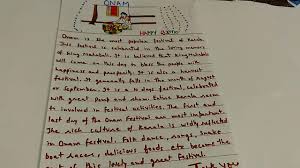 ONAM
HAPPY ONAM
Onam is the most popular festival of Kerala.
This festival is celebrated in the loving memory
of King Mahabali. It is believed that King Mahabali
will come on this day to bless the people with
happiness and prosperity. It is also a harvest
festival. It generally falls in the month of August
or September. It is a 10 days festival, celebrated
with great pomp and show. Entire Kerala seem
to involved in festival activities. The first and
last day of the Onam festival are most important.
The rich culture of Kerala is widly reflected
in Onam festival. Folk dance, songs, Snake
boat races, delicious foods etc become the
part of this lovely and great festival.